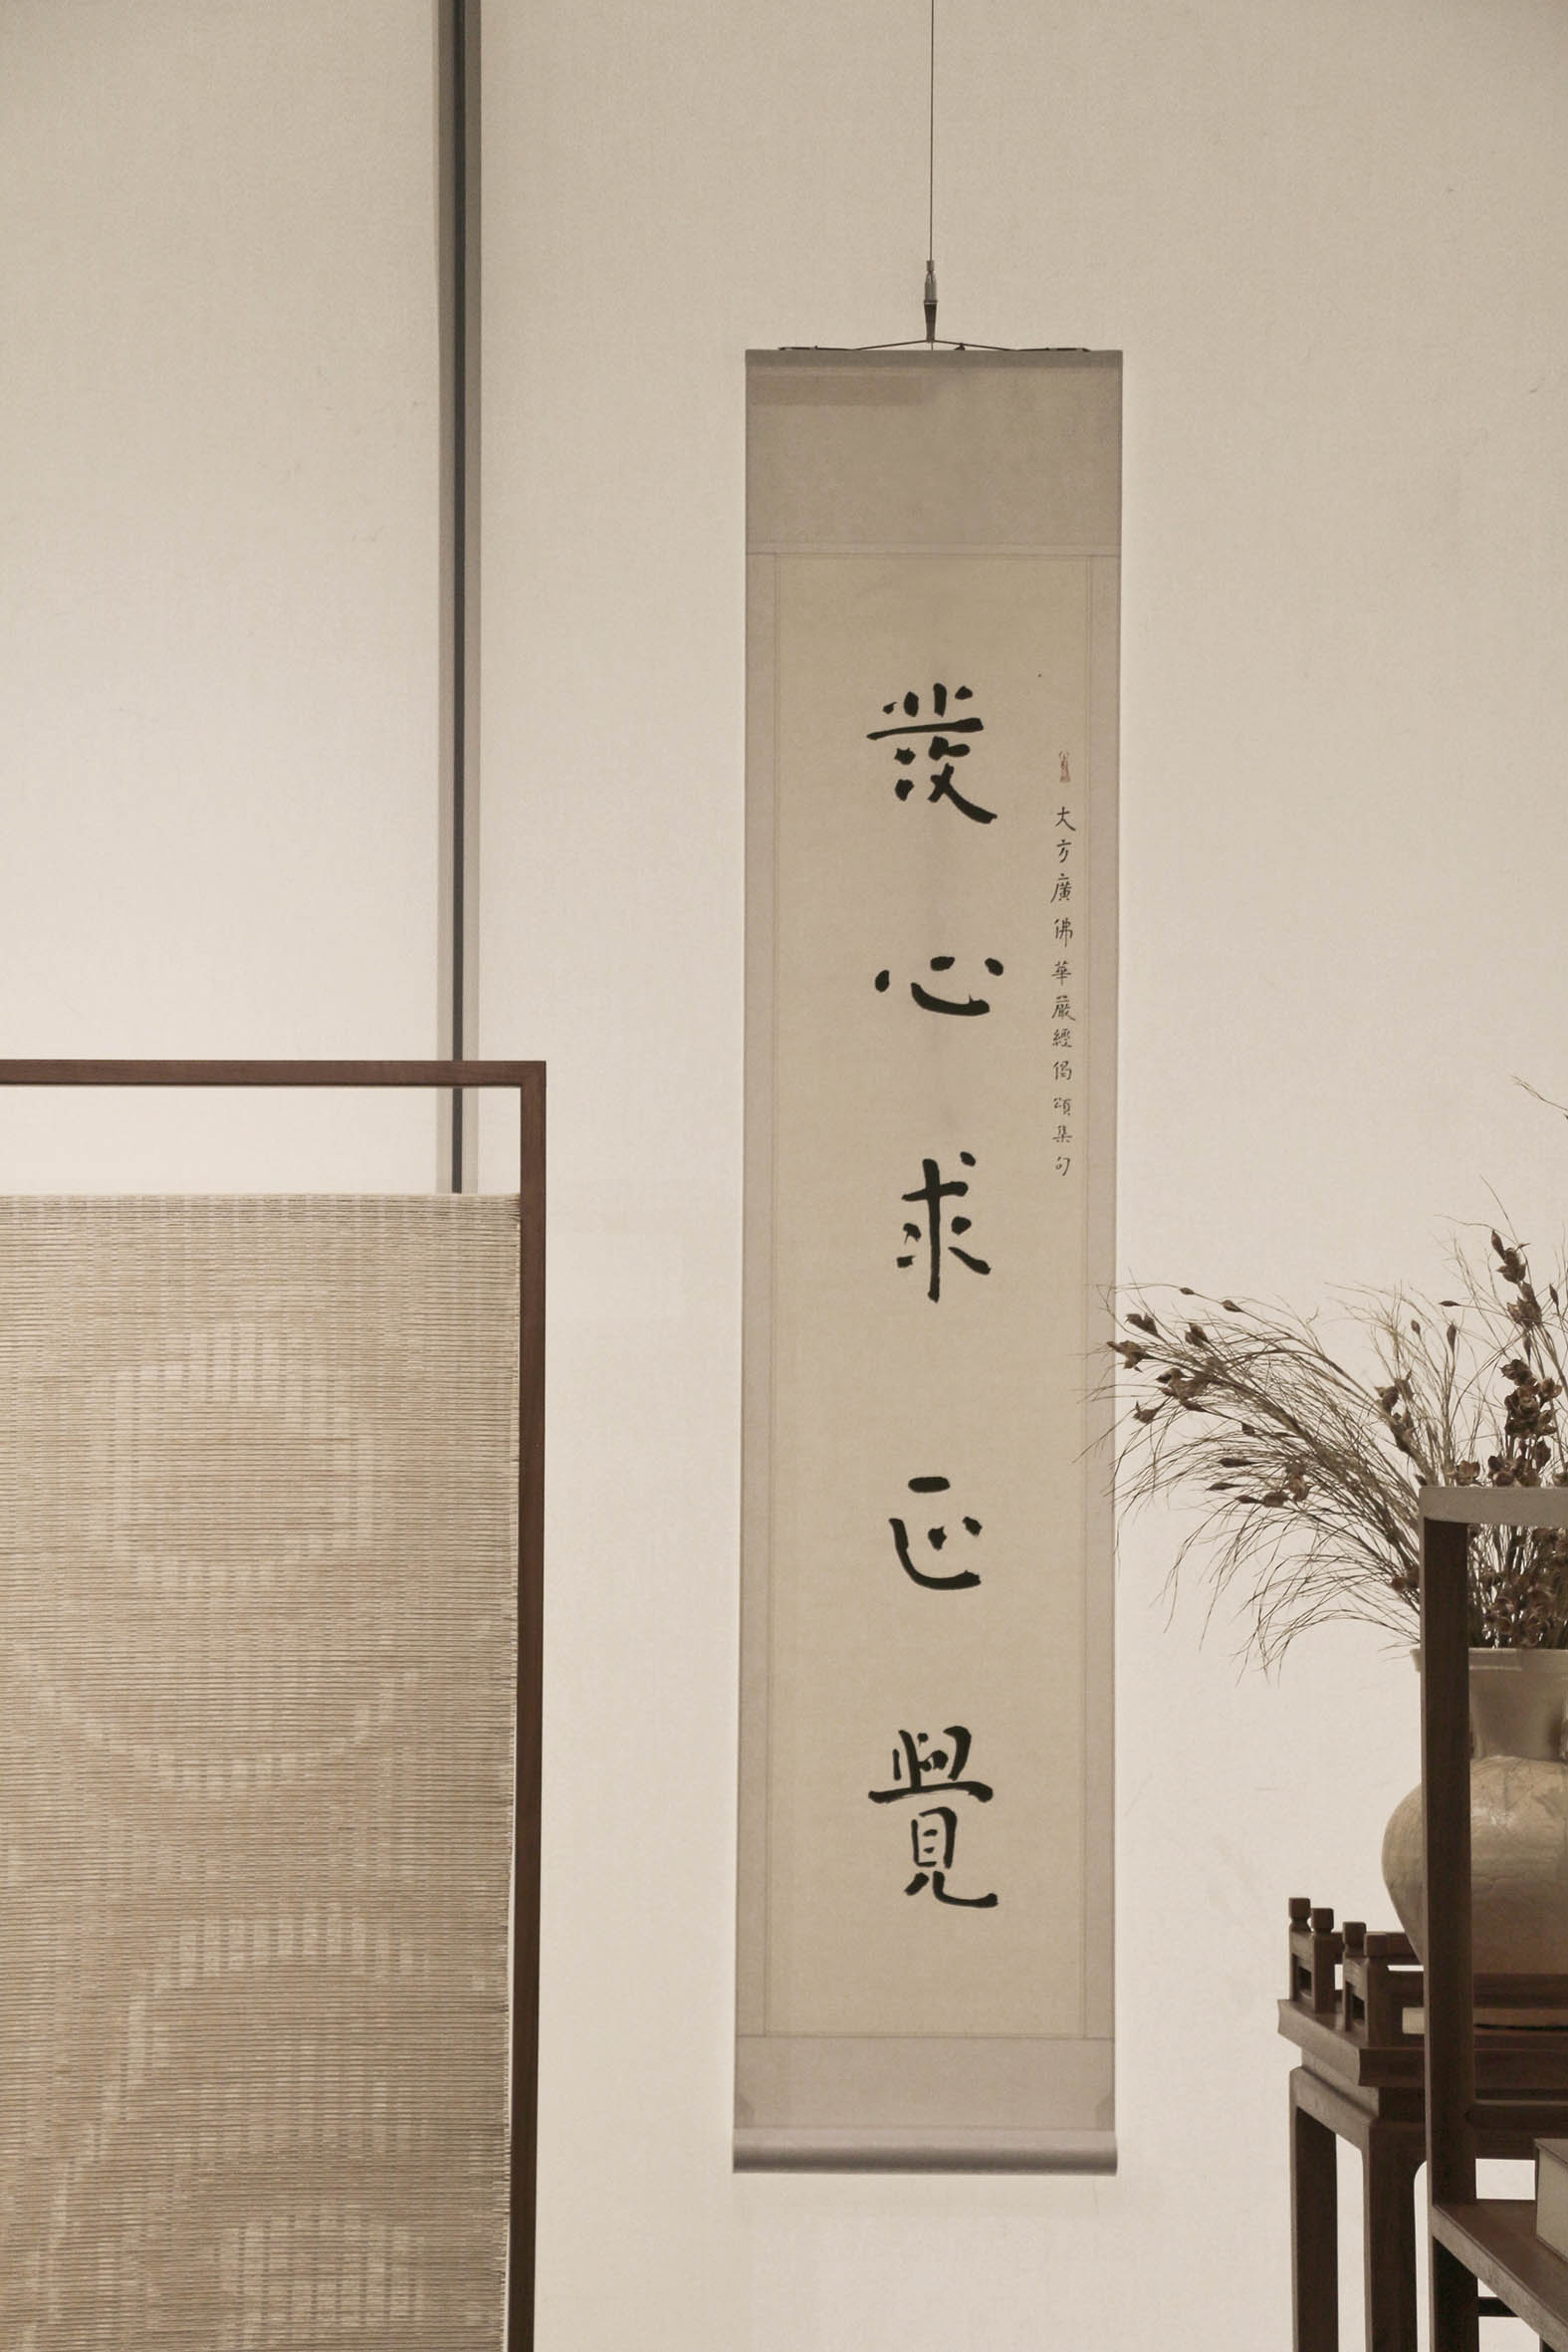 大方廣佛華嚴經偈頌集句
發心求正覺